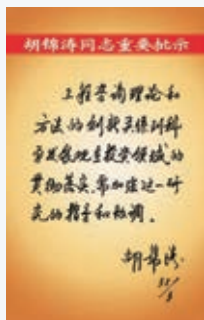 胡锦涛同志重要批示
工程咨询理论和
方法的创新关系到科
学发展观在投资领域的
贯彻落实,要加强这一研
究的指导和协调。
胡锦涛